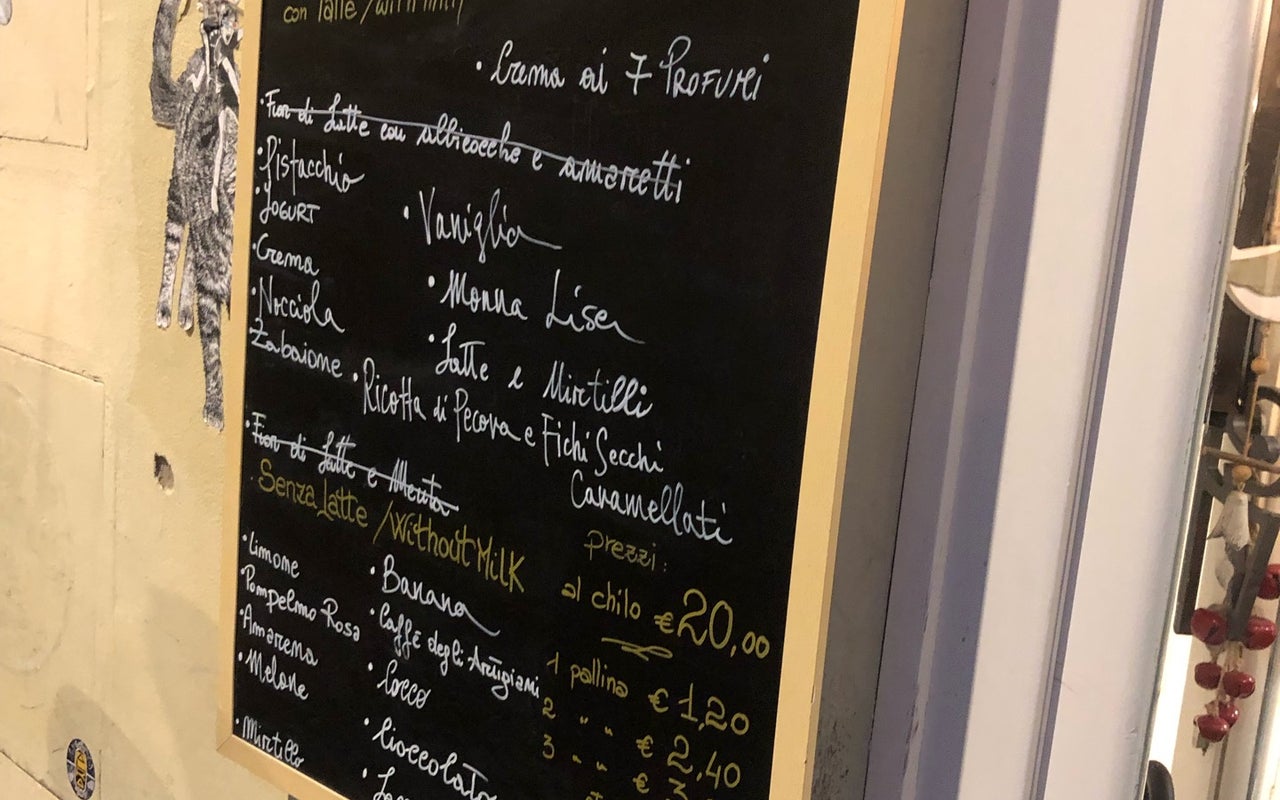 con latte / with milk
• Crema ai 7 PROFUMI
• Fior di Latte con albicocche e amaretti
• Pistacchio
• YOGURT
• Vaniglia
• Crema
• Monna Lisa
• Nocciola
• Latte e Mirtilli
• Zabaione
• Ricotta di Pecora e Fichi Secchi
Caramellati
• Fior di Latte e Menta
Senza Latte / Without Milk
Prezzi:
• Limone
• Banana
al chilo € 20,00
• Pompelmo Rosa
• Caffè degli Artigiani
• Amarena
1 pallina € 1,20
• Melone
• Cocco
2 " " € 2,40
• Mirtillo
• Cioccolato
3 " " €